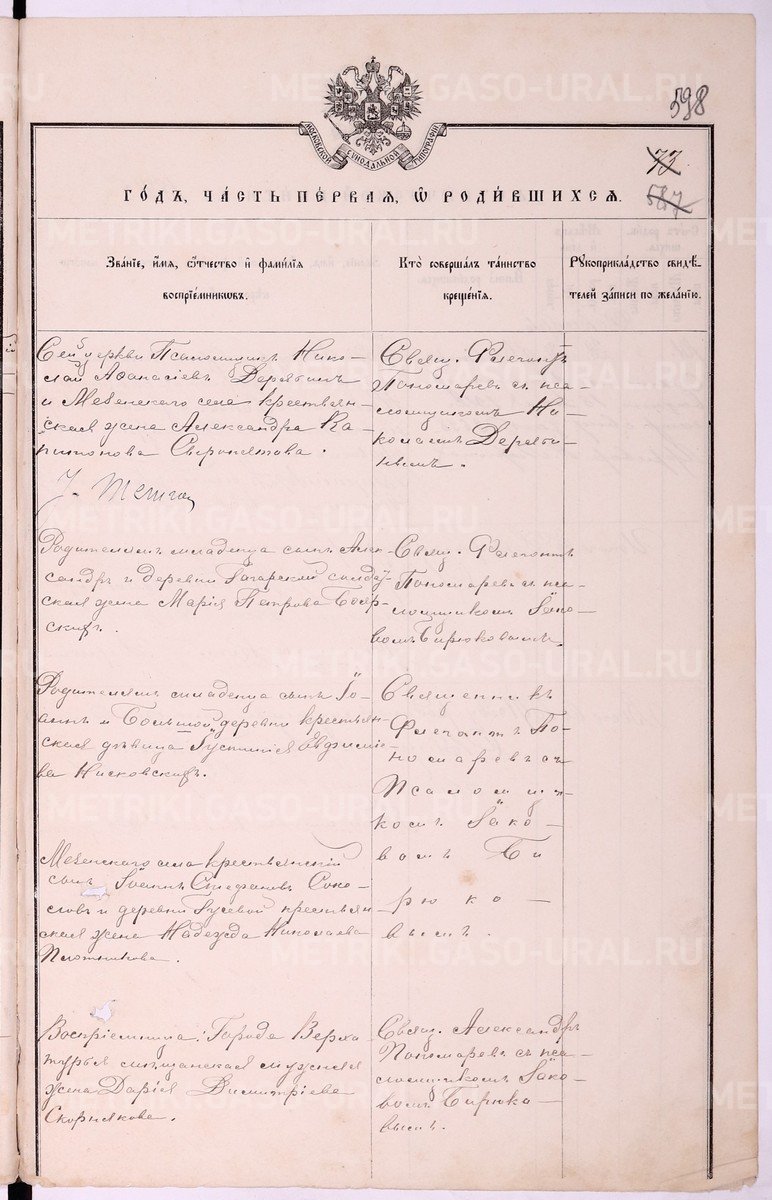 METRIKI.GASO-URAL.RU
598
МОСКОВСКОЙ СУНОДАЛЬНОЙ ТИПОГРАФІИ
73
587
ГО́ДЪ, ЧА́СТЬ ПЕ́РВАЯ, Ѡ РОДИ́ВШИХСЯ.
Зва́ніе, и́мя, ѻ́тчество и҆ фами́лія
воспріе́мникѡвъ.
Кто̀ соверша́лъ та́инство
креще́нія.
Рукоприкла́дство свидѣ́-
телей за́писи по жела́нію.
Сей церкви Псаломщикъ Нико-
лай Афанасіевъ Дерябинъ
и Меѳенскаго села крестьян-
ская жена Александра Ка-
питонова Сыропятова.
Свящ. Флегонтъ
Пономаревъ съ пса-
ломщикомъ Ни-
колаемъ Деряби-
нымъ.
Родителямъ младенца сынъ Алек-
сандръ и деревни Гагарской солдат-
ская жена Марія Петрова Бояр-
скихъ.
Свящ. Флегонтъ
Пономаревъ съ пса-
ломщикомъ Іако-
вомъ Бирюковымъ.
Родителямъ младенца сынъ Іо-
аннъ и Большой деревни крестьян-
ская дѣвица Іустинія Евфиміе-
ва Писковскихъ.
Священникъ
Флегонтъ По-
номаревъ съ
Псаломщи-
комъ Іако-
вомъ Би
рюко-
вымъ.
Меѳенскаго села крестьянскій
сынъ Іоаннъ Стефановъ Соко-
ловъ и деревни Гусевой крестьян
ская жена Надежда Николаева
Плотникова.
Воспріемница: Города Верхо
турья мѣщанская мужняя
жена Дарія Димитріева
Скорнякова.
Свящ. Александръ
Пономаревъ съ пса-
ломщикомъ Іако-
вомъ Бирюко
вымъ.